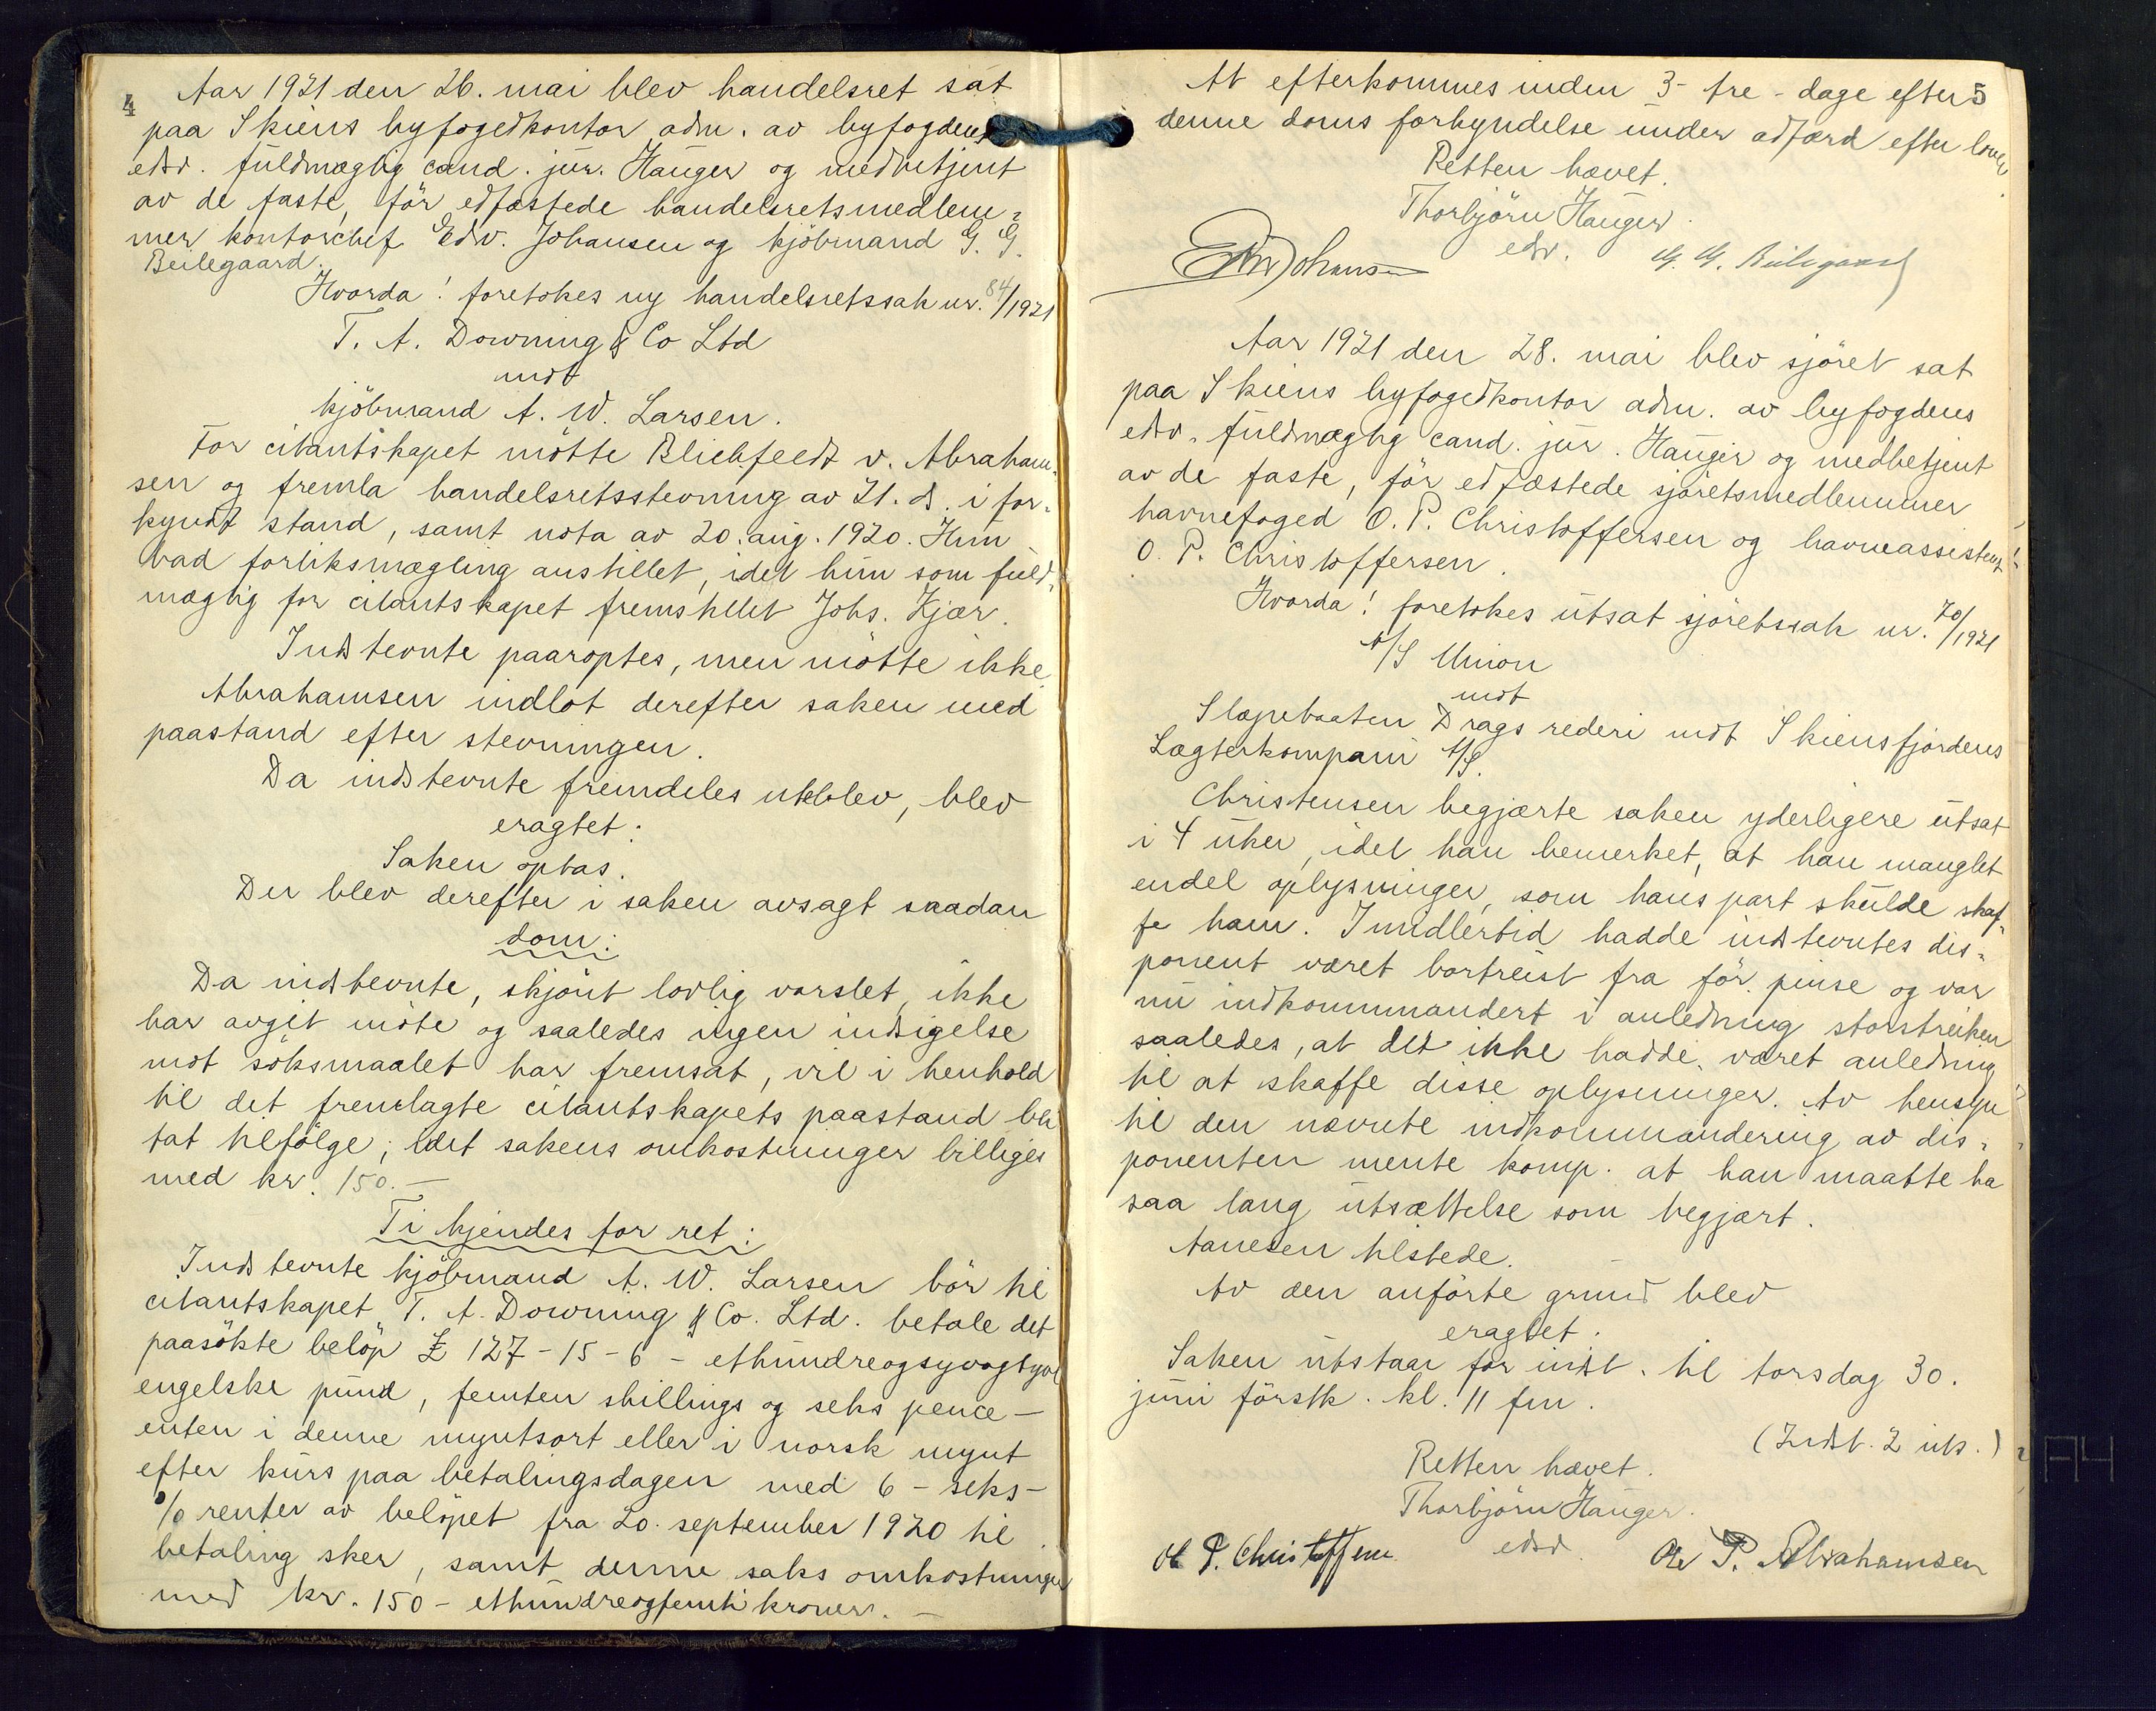 4
Aar 1921 den 26. mai blev handelsret sat
paa Skiens byfogedkontor adm. av byfogdens
edsv. fuldmægtig cand. jur. Hauger og medbetjent
av de faste, før edfæstede handelsretsmedlem-
mer kontorchef Edv. Johansen og kjöbmand G. G.
Beilegaard.
Hvorda! foretokes ny handelsretssak nr. 84/1921
T. A. Downing & Co Ltd
mot
kjöbmand A. W. Larsen.
For citantskapet mötte Blichfeldt v. Abraham-
sen og fremla handelsretsstevning av 21. ds. i for-
kyndt stand, samt nota av 20. aug. 1920. Hun
bad forliksmægling anstillet, idet hun som fuld-
mægtig for citantskapet fremstillet Johs. Kjær.
Indstevnte paaroptes, men mötte ikke.
Abrahamsen indlot derefter saken med
paastand efter stevningen.
Da indstevnte fremdeles uteblev, blev
eragtet:
Saken optas.
Der blev derefter i saken avsagt saadan
dom:
Da indstevnte, skjönt lovlig varslet, ikke
har avgit möte og saaledes ingen indsigelse
mot söksmaalet har fremsat, vil i henhold
til det fremlagte citantskapets paastand bli
tat tilfölge; idet sakens omkostninger billiges
med kr. 150.-
Ti kjendes for ret:
Indstevnte kjöbmand A. W. Larsen bör til
citantskapet T. A. Downing & Co. Ltd. betale det
paasökte belöp £ 127-15-6 - ethundreogsyvogtyve
engelske pund, femten shillings og seks pence -
enten i denne myntsort eller i norsk mynt
efter kurs paa betalingsdagen med 6 - seks -
% renter av belöpet fra 20. september 1920 til
betaling sker, samt denne saks omkostninger
med kr. 150 - ethundreogfemti kroner. -
5
At efterkommes inden 3 - tre - dage efter
denne doms forkyndelse under adfærd efter loven.
Retten hævet.
Thorbjörn Hauger.
edsv.
Edv Johansen
G. G. Beilegaard
Aar 1921 den 28. mai blev sjöret sat
paa Skiens byfogedkontor adm. av byfogdens
edsv. fuldmægtig cand. jur. Hauger og medbetjent
av de faste, för edfæstede sjöretsmedlemmer
havnefoged O. P. Christoffersen og havneassistent
O. P. Christoffersen.
Hvorda! foretokes utsat sjöretssak nr. 70/1921
A/S Union
mot
Slæpebaaten Drags rederi mot Skiensfjordens
Lægterkompani A/S.
Christensen begjærte saken yderligere utsat
i 4 uker, idet han bemerket, at han manglet
endel oplysninger, som hans part skulde skaf-
fe ham. Imidlertid hadde indstevntes dis-
ponent været bortreist fra för pinse og var
nu indkommandert i anledning storstreiken
saaledes, at det ikke hadde været anledning
til at skaffe disse oplysninger. Av hensyn
til den nævnte indkommandering av dis-
ponenten mente komp. at han maatte ha
saa lang utsættelse som begjært.
Aanesen tilstede.
Av den anförte grund blev
eragtet:
Saken utstaar for indst. til torsdag 30.
juni förstk. kl. 11 fm.
(Indst. 2 uts.)
Retten hævet.
Thorbjörn Hauger.
edsv.
Ol P. Christoffersen
Ole P. Abrahamsen